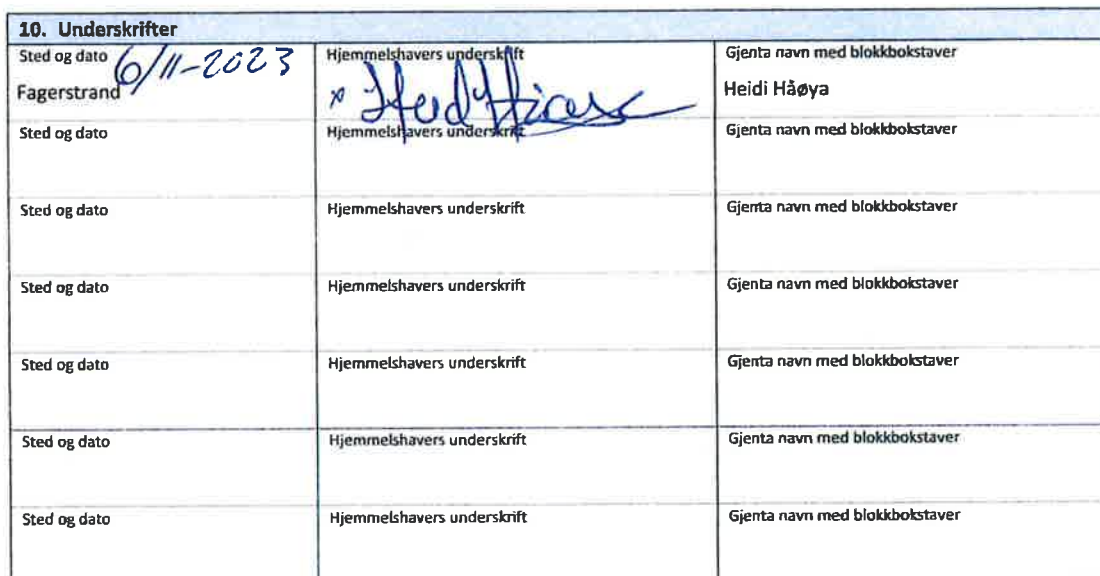 10. Underskrifter
Sted og dato 6/11-2023 Hjemmelshavers underskrift Gjenta navn med blokkbokstaver
Fagerstrand x Heidi Håøya
Sted og dato Hjemmelshavers underskrift Gjenta navn med blokkbokstaver
Sted og dato Hjemmelshavers underskrift Gjenta navn med blokkbokstaver
Sted og dato Hjemmelshavers underskrift Gjenta navn med blokkbokstaver
Sted og dato Hjemmelshavers underskrift Gjenta navn med blokkbokstaver
Sted og dato Hjemmelshavers underskrift Gjenta navn med blokkbokstaver
Sted og dato Hjemmelshavers underskrift Gjenta navn med blokkbokstaver